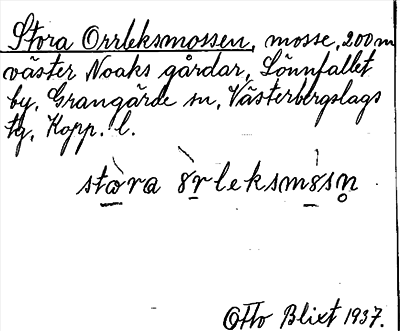 Stora Orrleksmossen, mosse, 200 m
väster Noaks gårdar, Lönnfallet
by, Grangärde sn, Västerbergslags
tg, Kopp. l.
stòra 8̀rleksm8̀sn̥
Otto Blixt 1937.